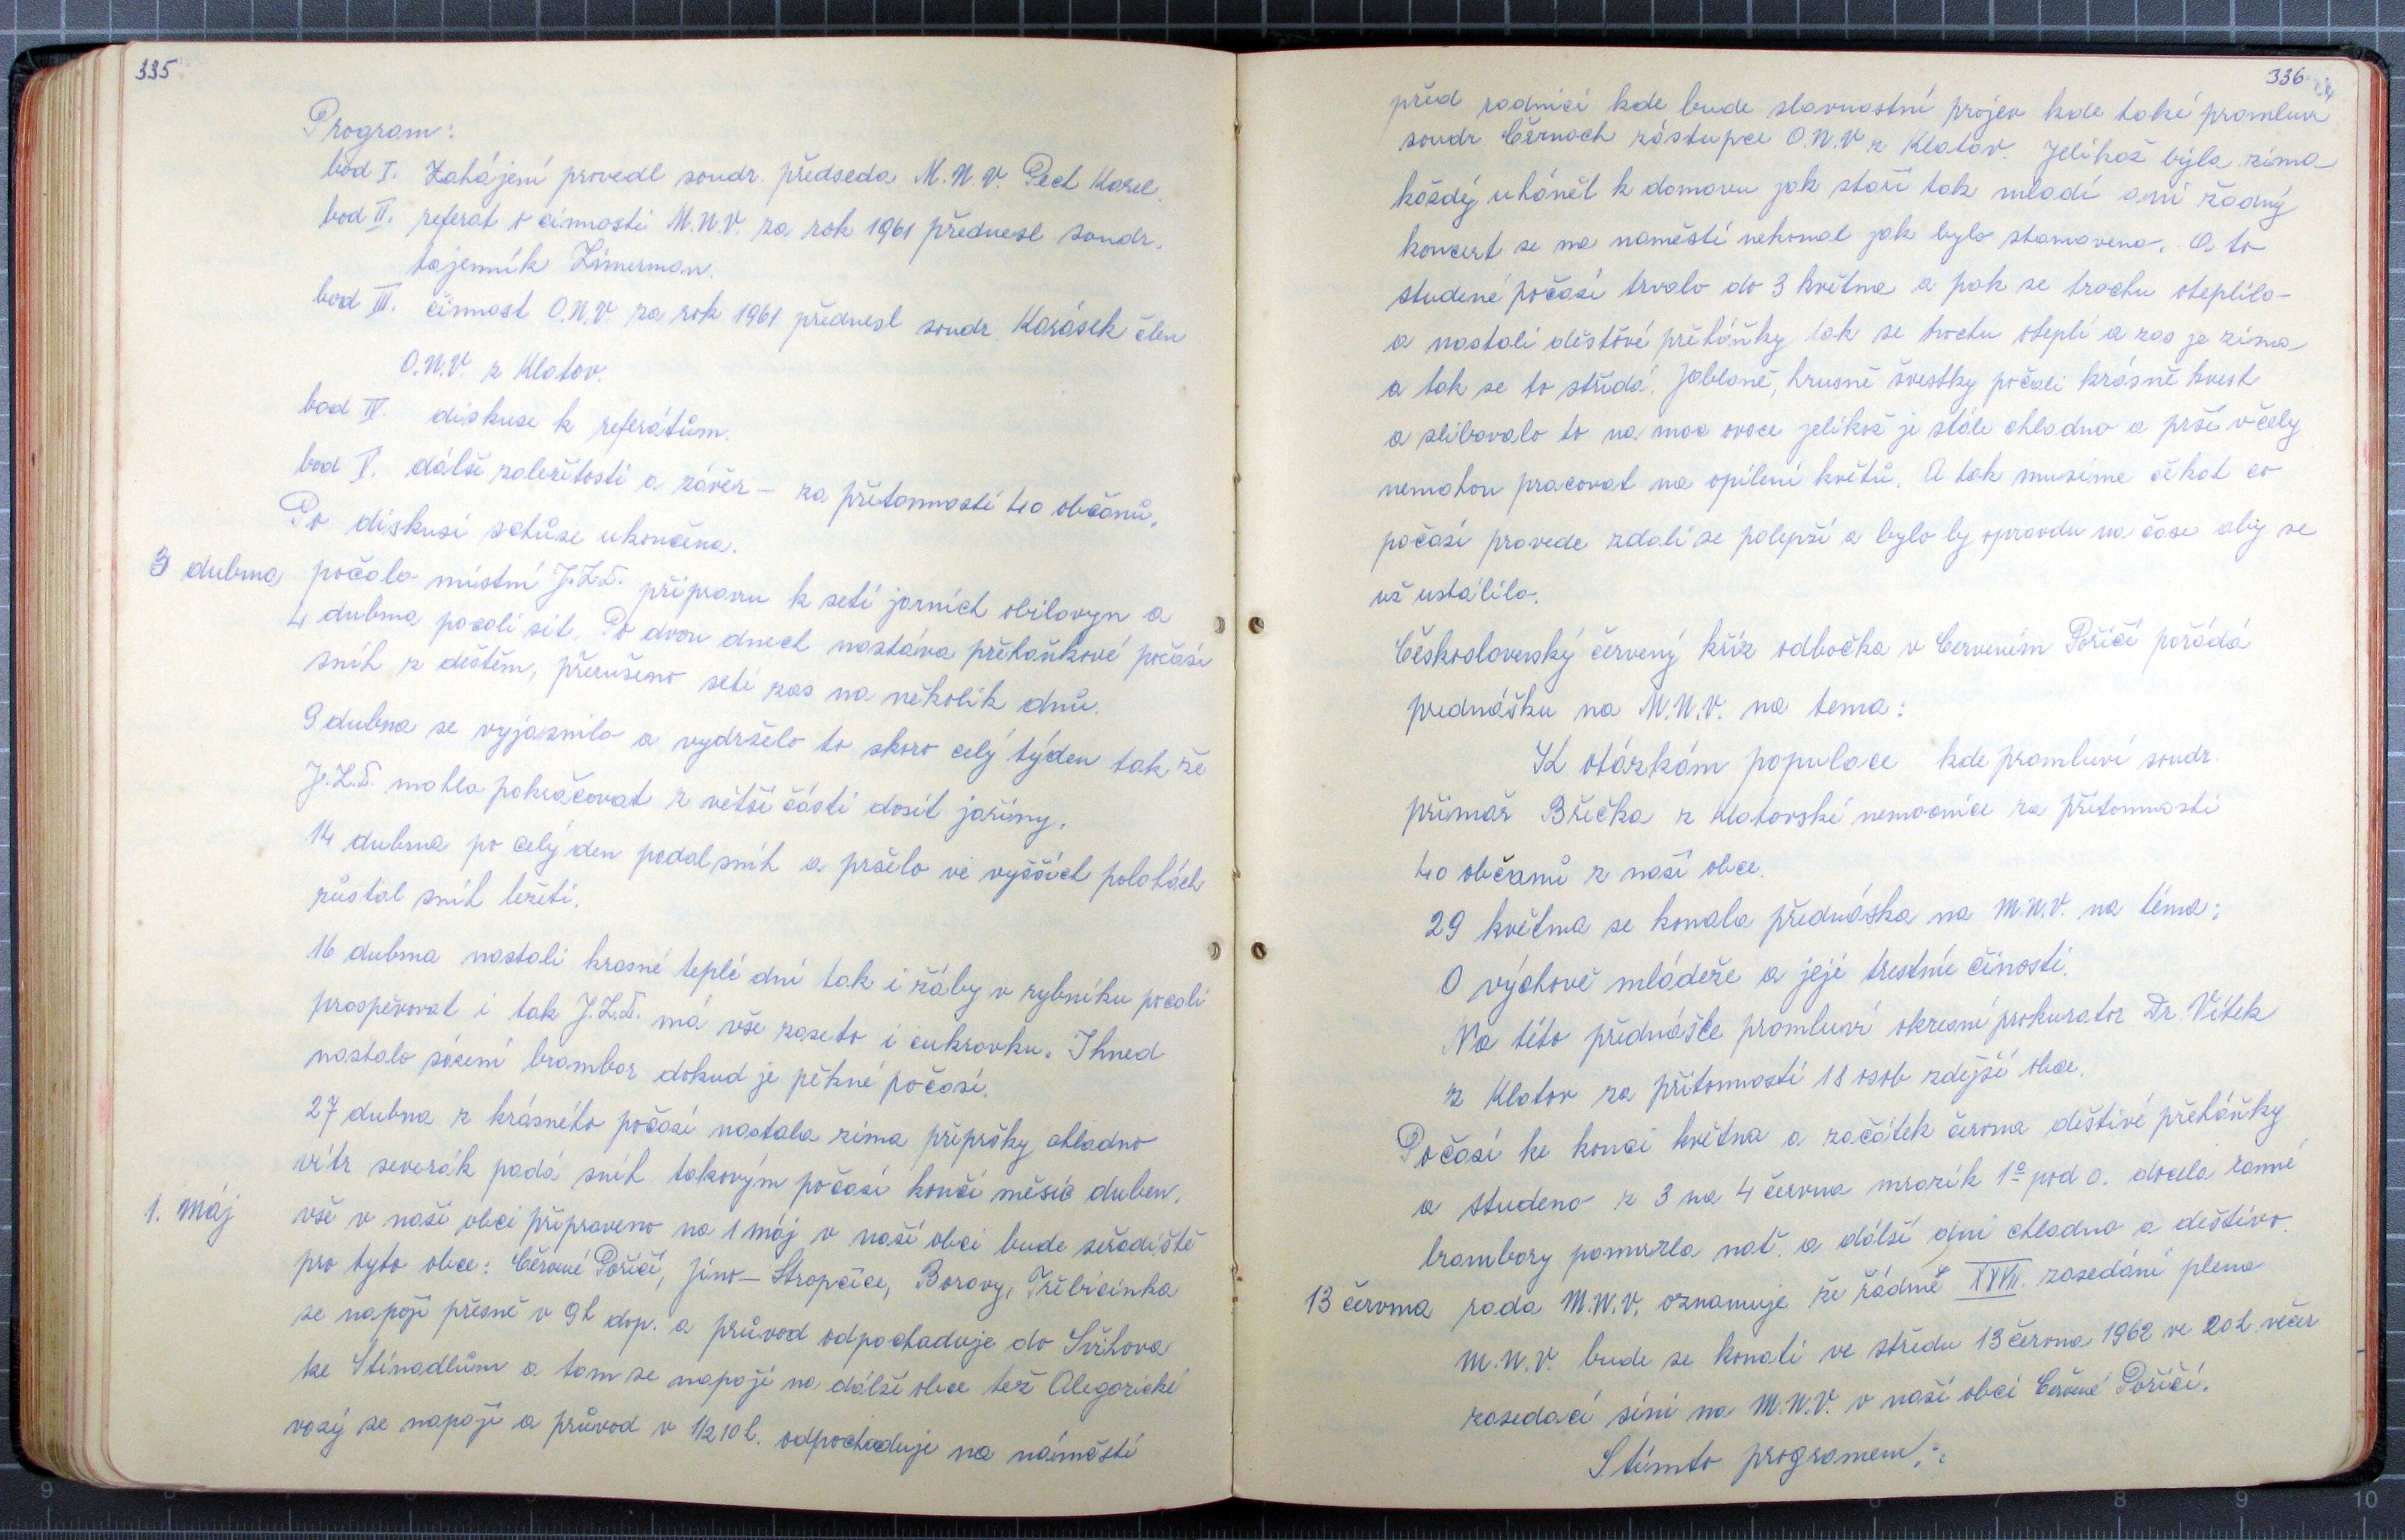 335
Program:
bod I. Zahájení provedl soudr. předseda M.N.V. Pech Karel.
bod II. referat o činnosti M.N.V. za rok 1961 přednesl soudr.
tajemník Zimerman.
bod III. činnost O.N.V. za rok 1961 přednesl soudr. Karásek člen
O.N.V. z Klatov.
bod IV. diskuse k referátům.
bod V. dálší zaležitosti a závěr - za přítomnosti 40 občanů.
Po diskusi schůze ukončena.
3 dubna počala místní J.Z.D. přípravu k setí jarních obilovyn a
4 dubna pocali sít. Po dvou dnech nastáva přeháňkové počasí
sníh z deštěm, přerušeno setí zas na několik dnů.
9 dubna se vyjasnilo a vydrželo to skoro celý týden tak že
J.Z.D. mohla pokračovat z větší části dosít jařiny.
14 dubna po celý den padal sníh a pršelo ve vyšších polohách
zůstal sníh ležeti.
16 dubna nastali krasné teplé dni tak i žáby v rybníku pocali
prospěvovat i tak J.Z.D. má vše zaseto i cukrovku. Ihned
nastalo sázení brambor dokud je pěkné počasí.
27 dubna z krásného počasí nastala zima přepršky chladno
vítr severák padá sníh takovým počasí končí měsíc duben.
1. Máj vše v naší obci připraveno na 1 máj v naší obci bude seřadiště
pro tyto obce: Červené Poříčí, Jíno - Strapčice, Borovy, Třebícinka
se napojí přesně v 9h dop. a průvod odpochoduje do Svihova
ke Stínadlům a tam se napojí na dálší obce též Alegorické
vozý se napojí a průvod v 1/2 10 h. odpochoduje na náměstí
336
před radnicí kde bude slavnostní projev kde také promluví
soudr Černoch zástupce O.N.V z Klatov. Jelikož býla zima
každý uháněl k domovu jak staří tak mladí ani žadný
koncert se na naměstí nekonal jak bylo stanoveno. A to
studené počasí trvalo do 3 května a pak se trochu oteplilo
a nastali děštové přeháňky tak se trochu oteplí a zas je zima
a tak se to střídá. Jabloně, hrusně švestky počali krásně kvést
a slibovalo to na moc ovoce jelikož je stále chladno a prší včely
nemohou pracovat na opilení květů. A tak musíme čekat co
počasí provede zdali se polepší a bylo by opravdu na čase aby se
už ustálilo.
Československý červený kříz odbočka v Cerveném Poříčí pořádá
prednášku na M.N.V. na tema:
K otázkám populace kde promluví soudr.
přimář Břečka z klatovské nemocnice za přítomnosti
40 občanů z naší obce.
29 května se konala přednáska na M.N.V. na téma:
O výchově mládeže a její trestnie činosti.
Na této přednášce promluví okresní prokurator Dr. Vítek
z Klatov za přítomnosti 18 osob zdejší obce.
Počasí ke konci května a začátek června deštivé přeháňky
a studeno z 3 na 4 června mrazík 1º pod 0. docela ranné
brambory pomrzla nať. a dálší dni chladno a deštivo.
13 června rada M.N.V. oznamuje že řádné XVII. zasedání plena
M.N.V. bude se konati ve středu 13 června 1962 ve 20h večer
zasedací síni na M.N.V. v naší obci Červené Poříčí.
S tímto programem: